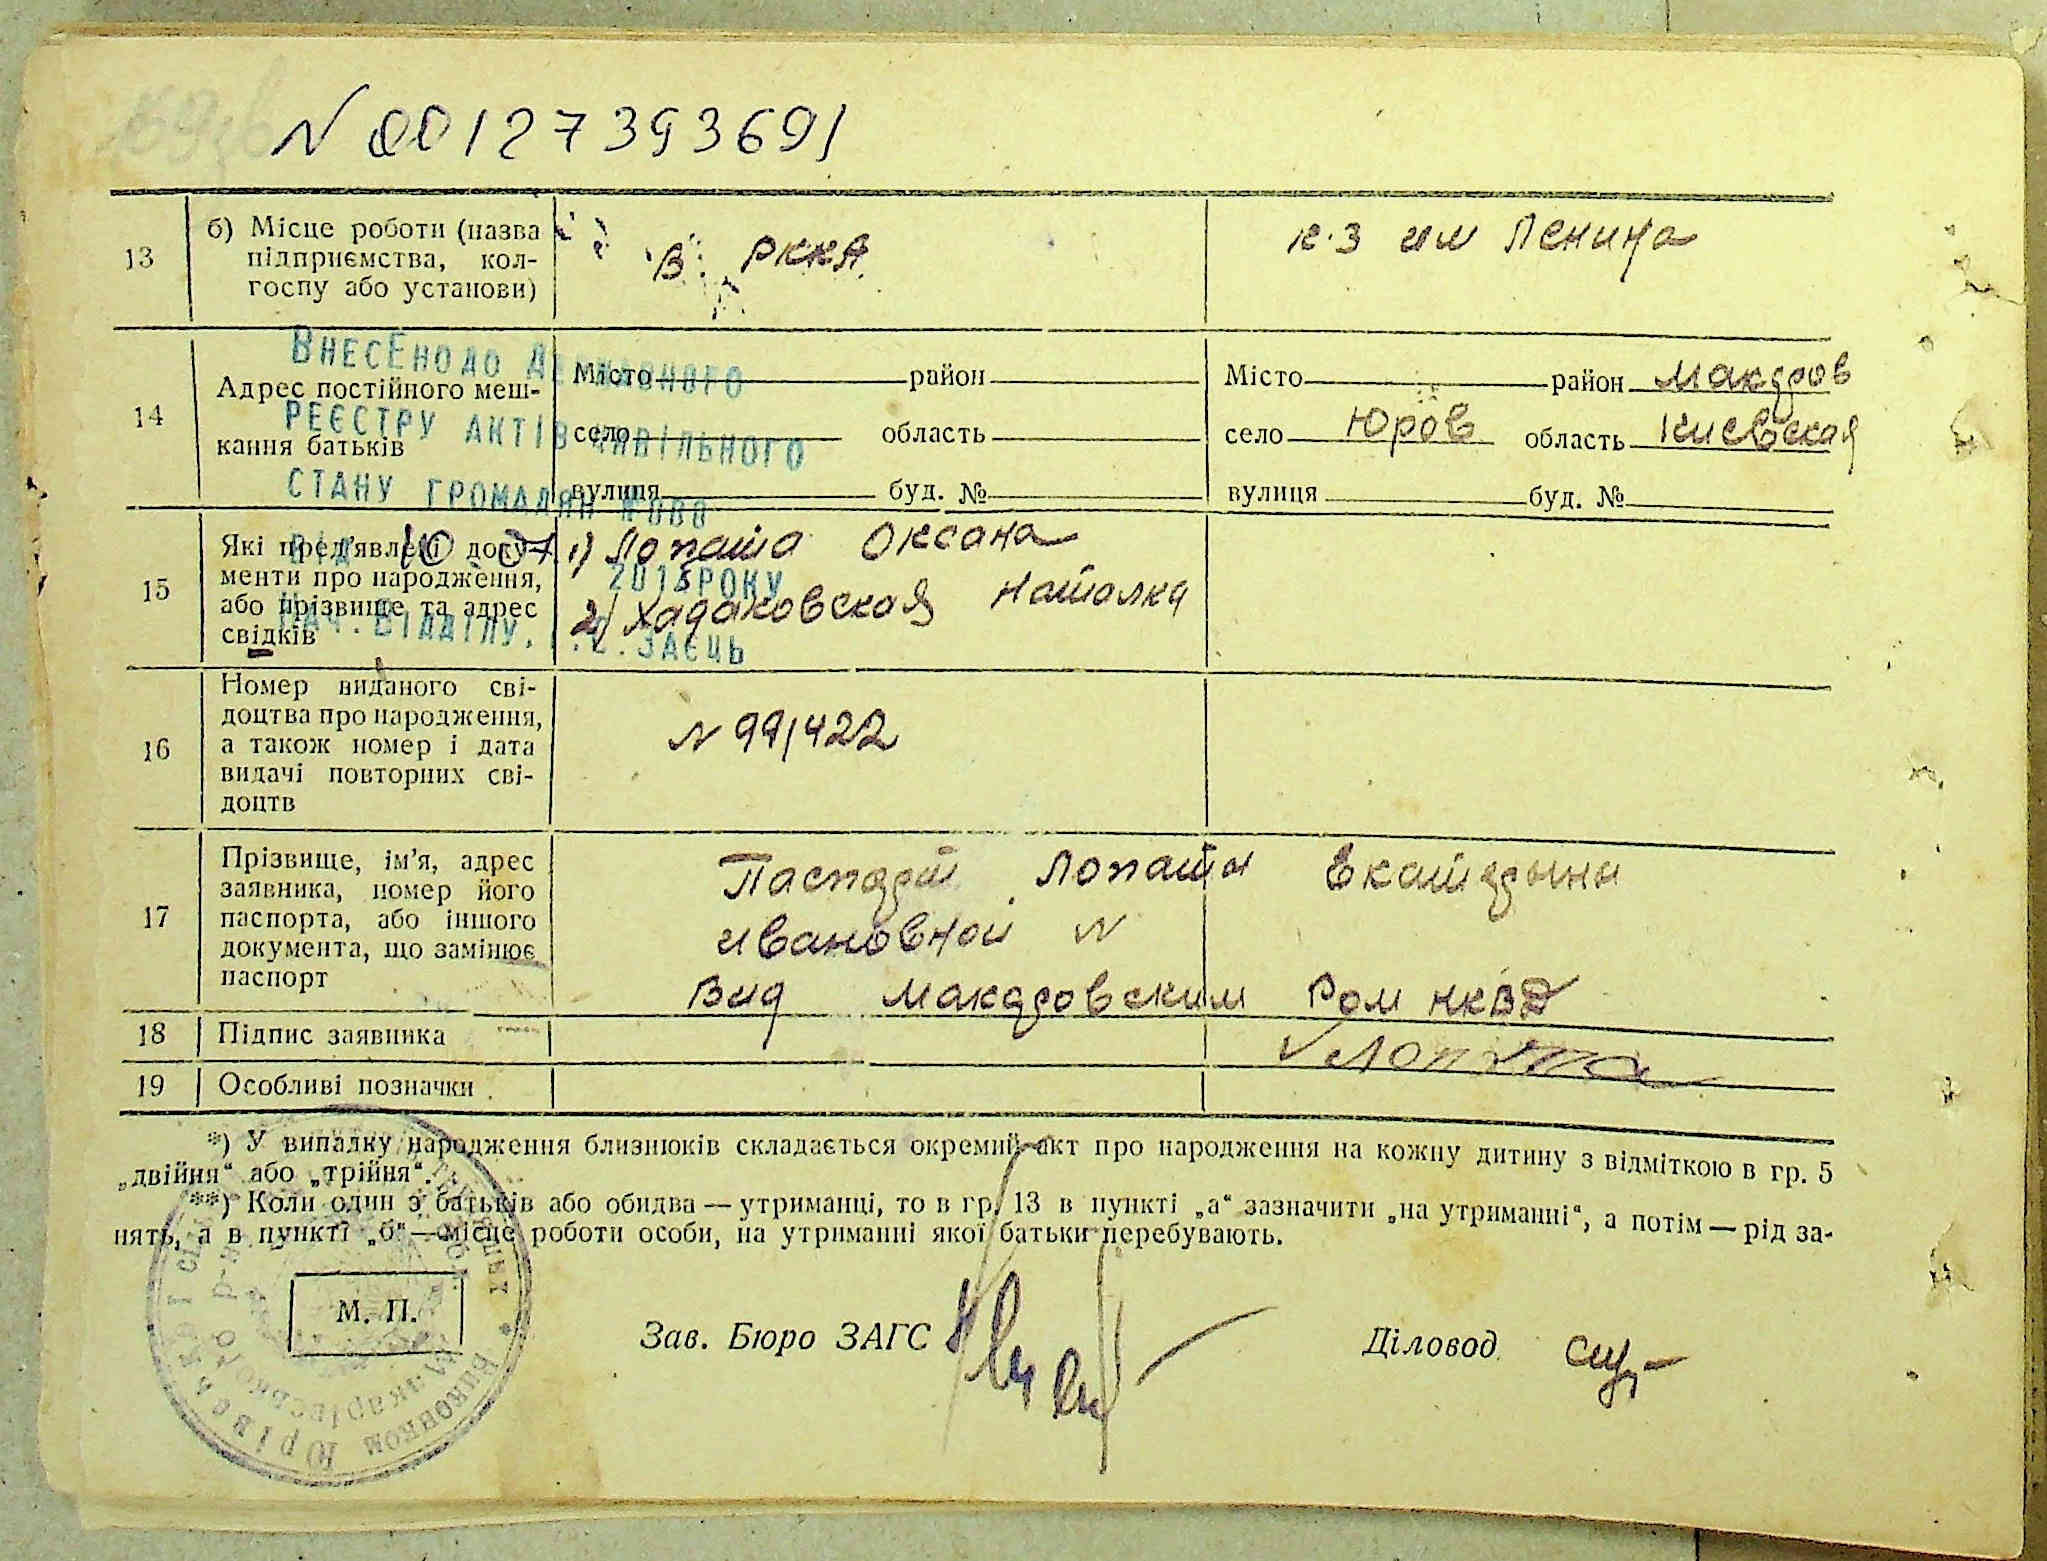 N 00127393691
13
б) Місце роботи (назва
підприємства, кол-
госпу або установи)
В. РККА.
к-з им Ленина
14
Адрес постійного меш-
кання батьків
Місто район
село область
вулиця буд. №
Місто район Макаров
село Юров область Киевская
вулиця буд. №
ВНЕСЕНО ДО ДЕРЖАВНОГО
РЕЄСТРУ АКТІВ ЦИВІЛЬНОГО
СТАНУ ГРОМАДЯН
ВІД 10 07 2015 РОКУ
НАЧ. ВІДДІЛУ ЗАЄЦЬ
15
Які пред'явлені доку-
менти про народження,
або прізвище та адрес
свідків
1) Лопата Оксана
2) Хадаковская Наталка
16
Номер виданого сві-
доцтва про народження,
а також номер і дата
видачі повторних сві-
доцтв
N 99/422
17
Прізвище, ім'я, адрес
заявника, номер його
паспорта, або іншого
документа, що замінює
паспорт
Паспорт Лопаты Екатерины
Ивановной N
Вид Макаровским Ром НКВД
18
Підпис заявника
Лопата
19
Особливі позначки
*) У випадку народження близнюків складається окремий акт про народження на кожну дитину з відміткою в гр. 5
„двійня“ або „трійня“.
**) Коли один з батьків або обидва — утриманці, то в гр. 13 в пункті „а“ зазначити „на утриманні“, а потім — рід за-
нять, а в пункті „б“ — місце роботи особи, на утриманні якої батьки перебувають.
М. П.
Зав. Бюро ЗАГС
Діловод